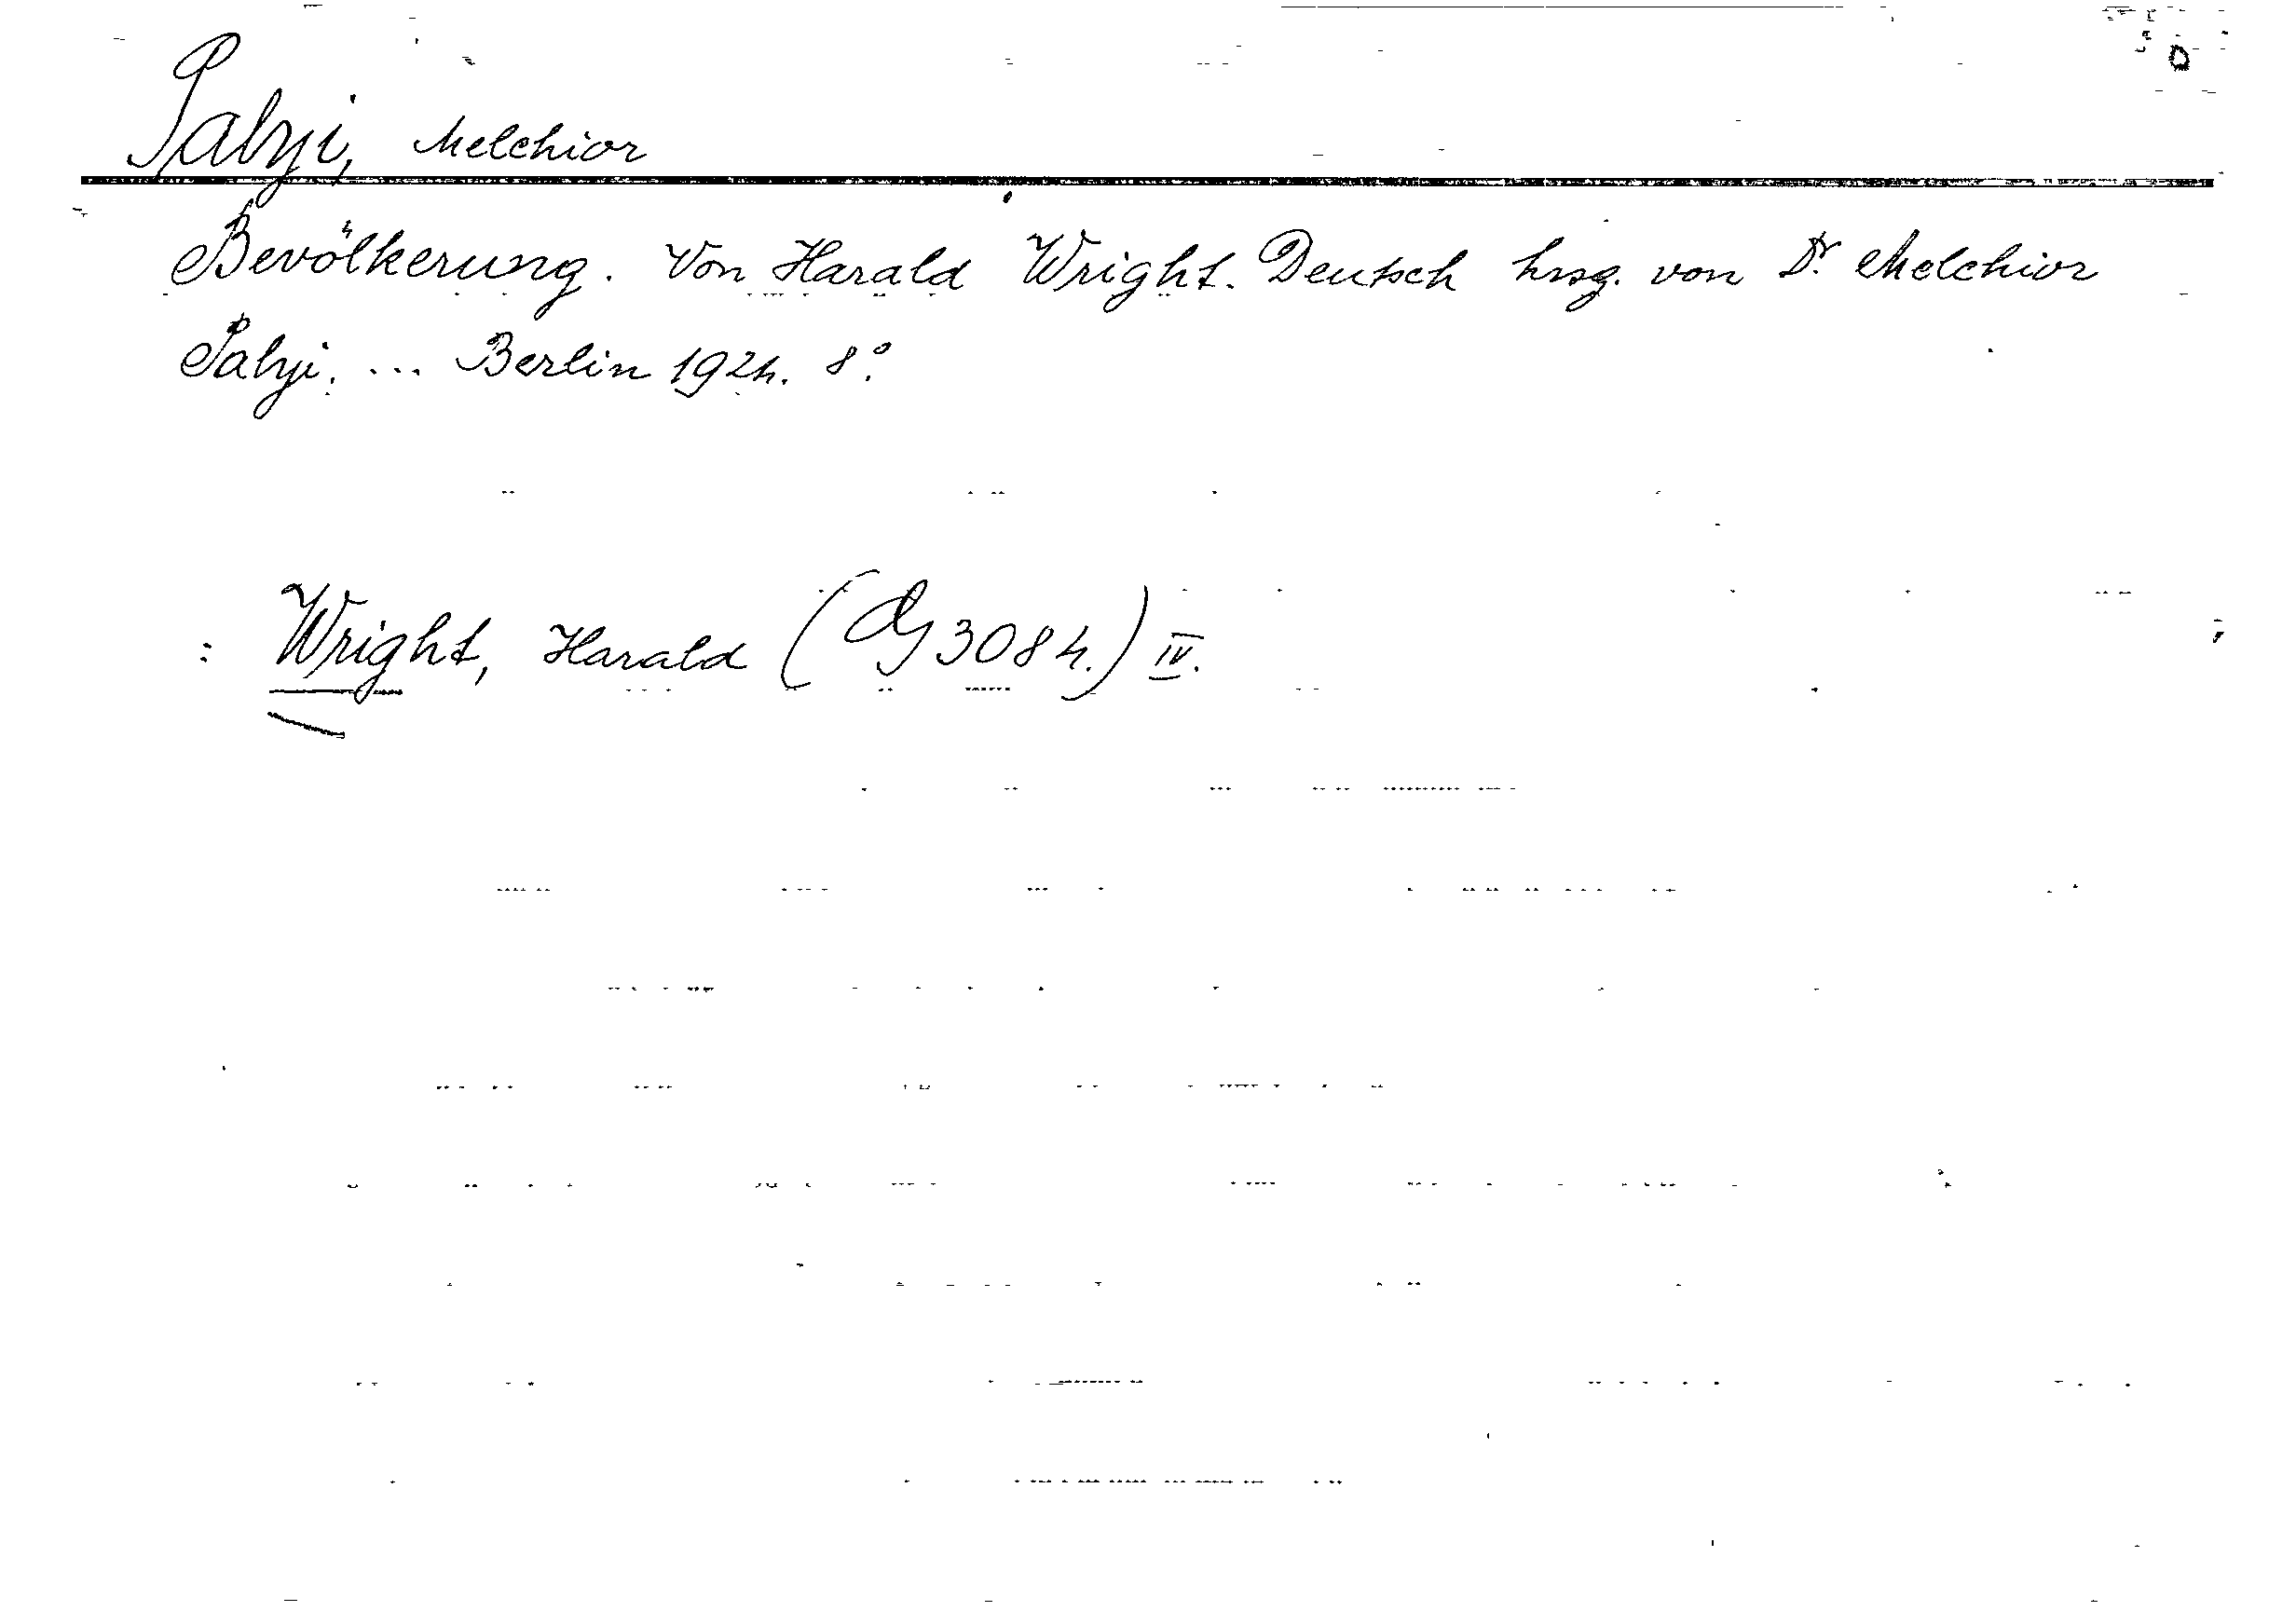 Palyi, Melchior
Bevölkerung. Von Harald Wright. Deutsch hrsg. von Dr. Melchior
Palyi. ... Berlin 1924. 8°.
: Wright, Harald (Dg 3084.) IV.